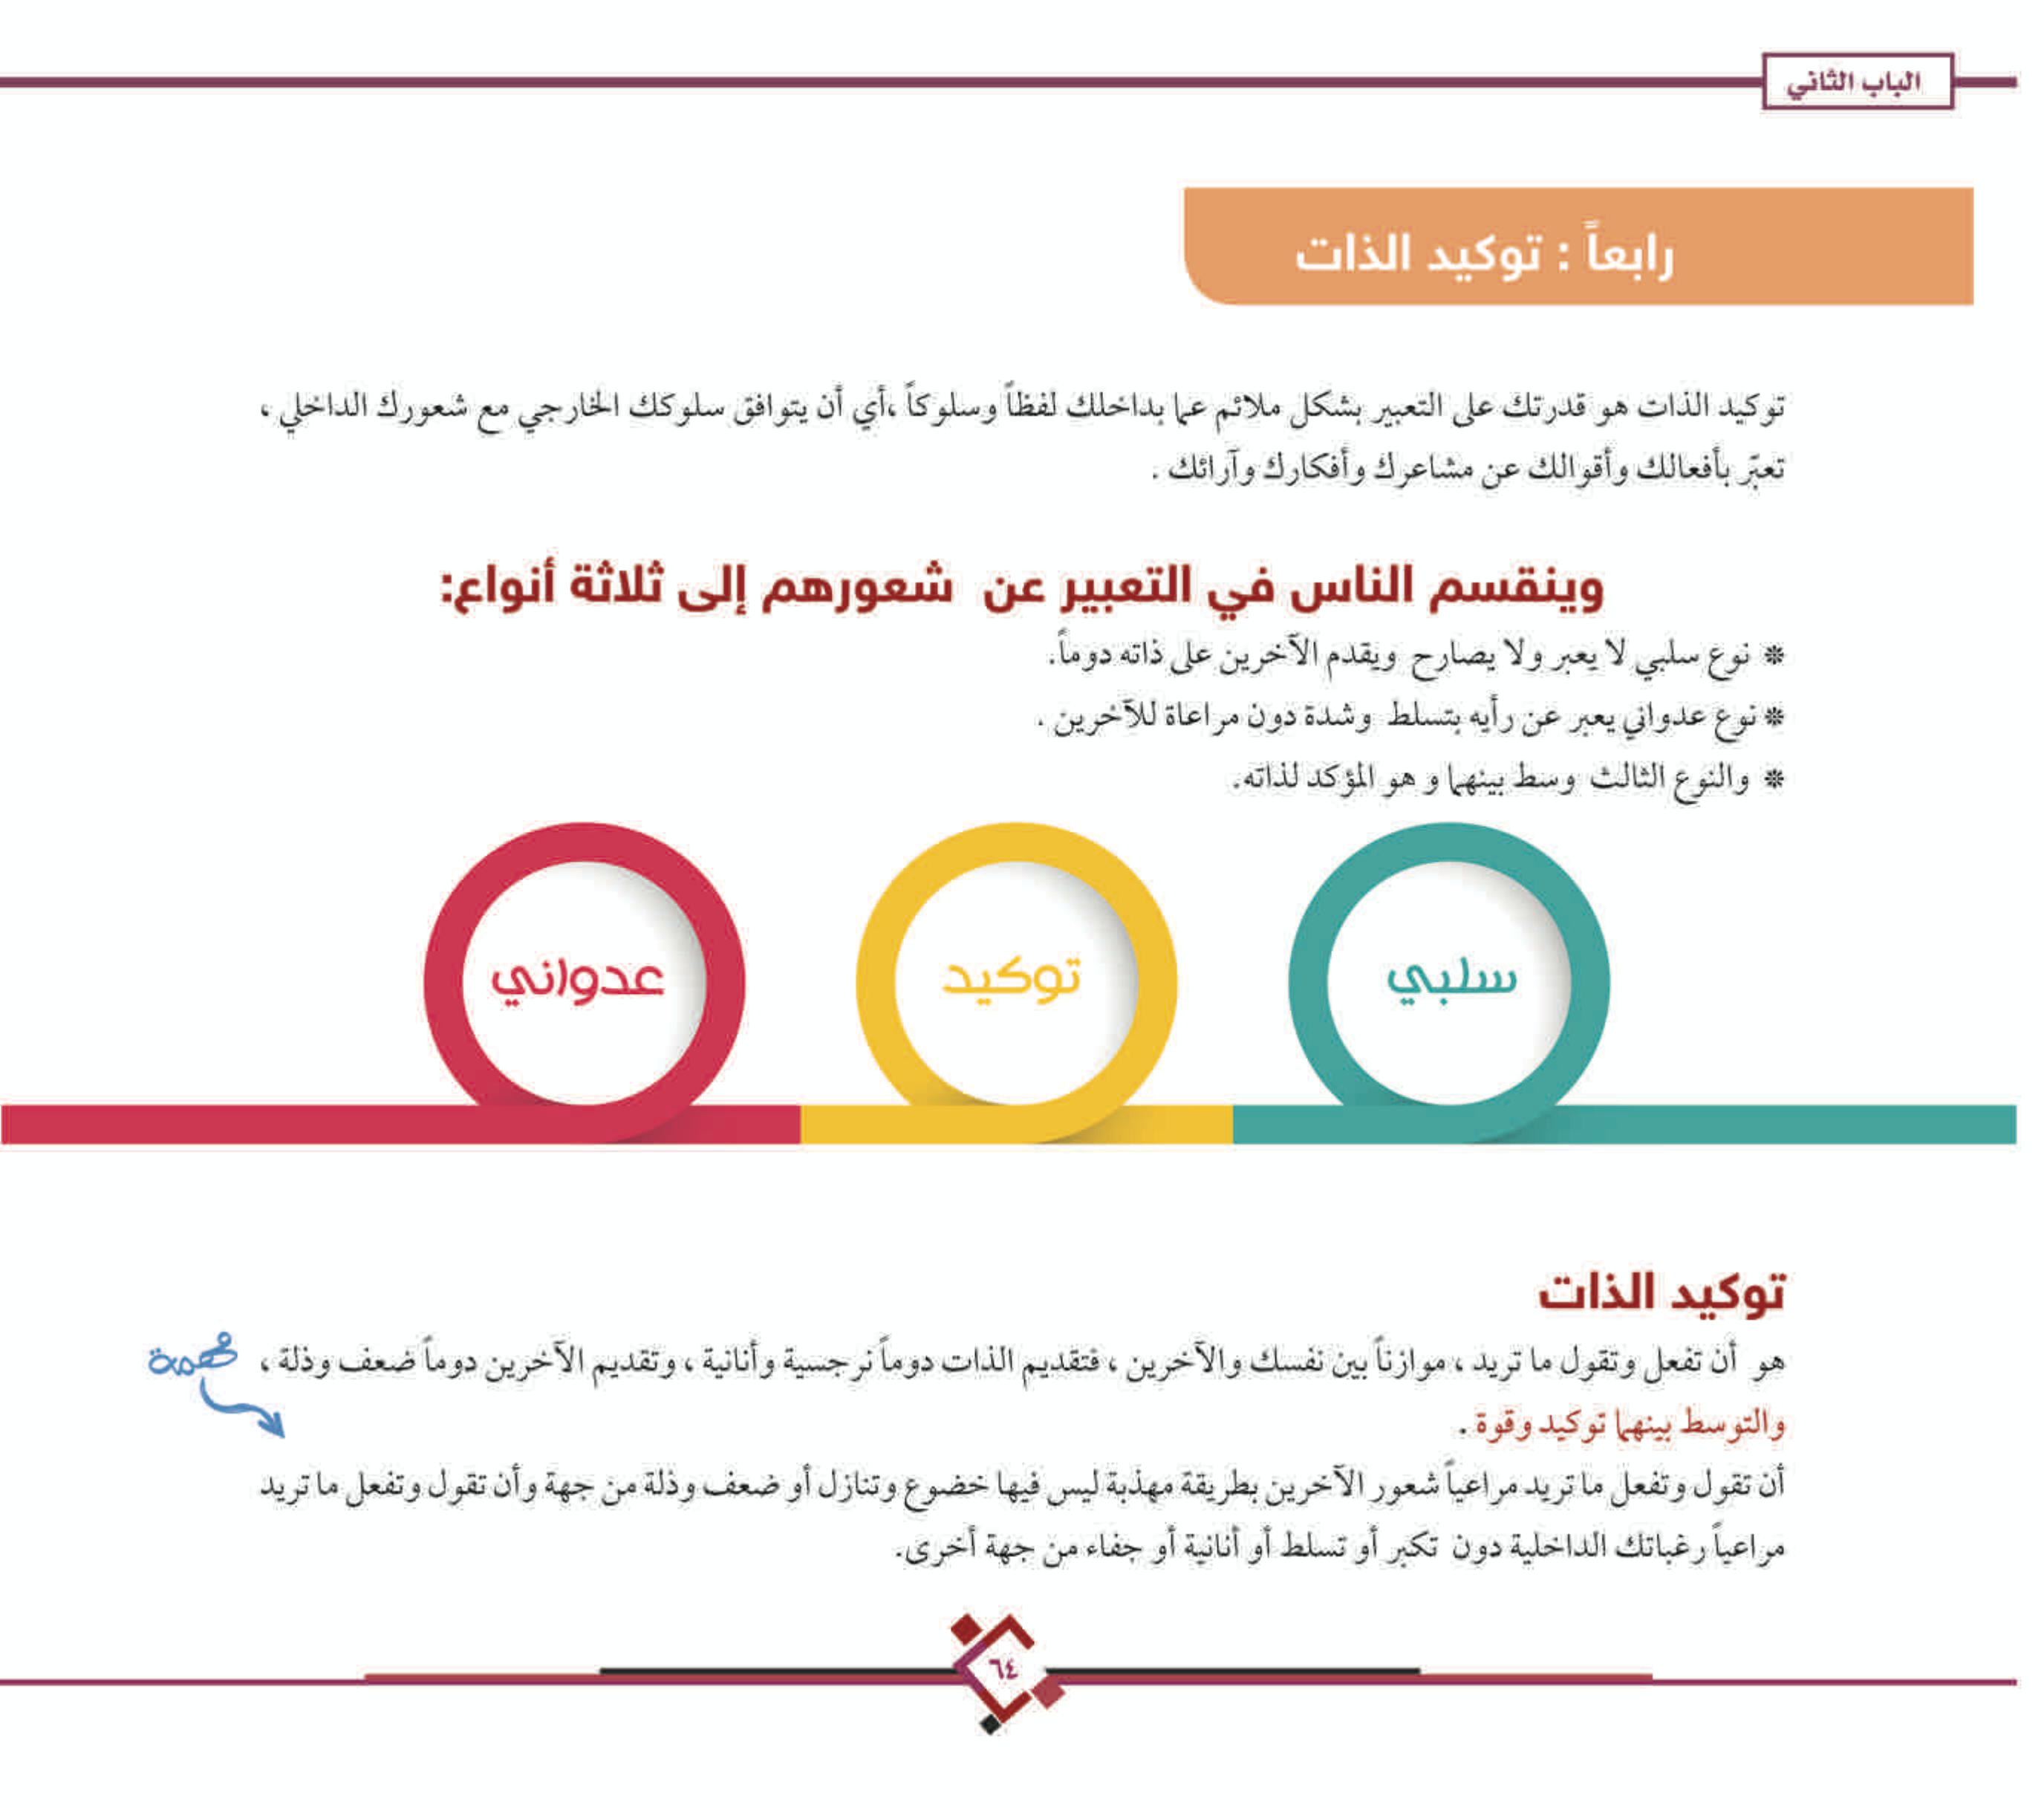 الباب الثاني
رابعاً : توكيد الذات
توكيد الذات هو قدرتك على التعبير بشكل ملائم عما بداخلك لفظاً وسلوكاً ،أي أن يتوافق سلوكك الخارجي مع شعورك الداخلي ،
تعبّر بأفعالك وأقوالك عن مشاعرك وأفكارك وآرائك .
وينقسم الناس في التعبير عن شعورهم إلى ثلاثة أنواع:
❋ نوع سلبي لا يعبر ولا يصارح ويقدم الآخرين على ذاته دوماً.
❋ نوع عدواني يعبر عن رأيه بتسلط وشدة دون مراعاة للآخرين .
❋ والنوع الثالث وسط بينهما و هو المؤكد لذاته.
سلبي
توكيد
عدواني
توكيد الذات
هو أن تفعل وتقول ما تريد ، موازناً بين نفسك والآخرين ، فتقديم الذات دوماً نرجسية وأنانية ، وتقديم الآخرين دوماً ضعف وذلة ،
مهمة
والتوسط بينهما توكيد وقوة .
أن تقول وتفعل ما تريد مراعياً شعور الآخرين بطريقة مهذبة ليس فيها خضوع وتنازل أو ضعف وذلة من جهة وأن تقول وتفعل ما تريد
مراعياً رغباتك الداخلية دون تكبر أو تسلط أو أنانية أو جفاء من جهة أخرى.
٦٤